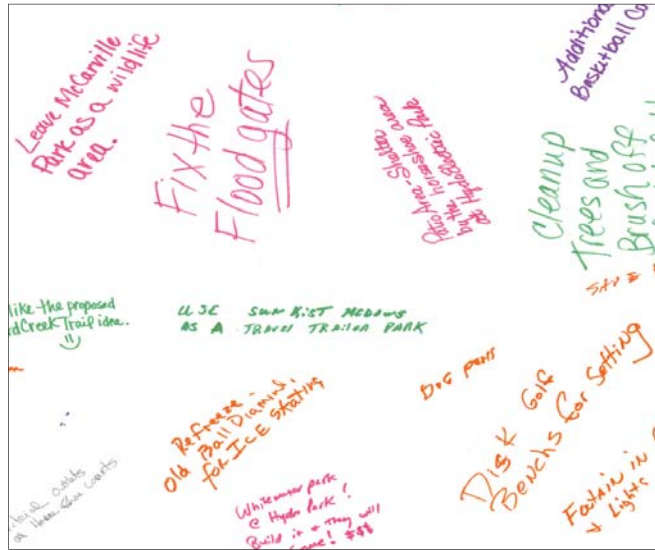 Leave McCarville
Park as a wildlife
area.
Fix the
Flood gates
Patio Area - Shelter
by the horseshoe area
at HydroElectric Park
Additional
Basketball
Cleanup
Trees and
Brush off
like the proposed
Creek Trail idea.
USE SUN KIST MEDOWS
AS A TRAVEL TRAILER PARK
Refreeze -
Old Ball Diamind,
for ICE skating
DOG PARK
Disk Golf
Benchs for setting
outlets
at Horse Shoe courts
Whitewater park
@ Hydro Park!
Build it & They will
come! $$$
Fountain in
+ Lights